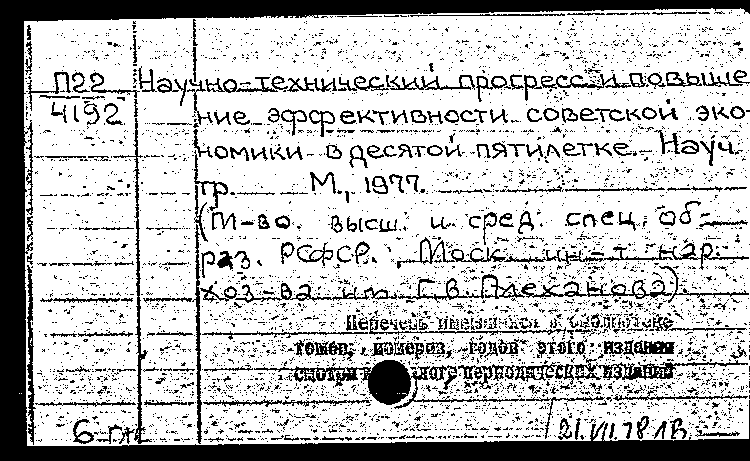 П22 Научно-технический прогресс и повыше
4192 ние эффективности советской эко-
номики в десятой пятилетке. Науч.
тр. М., 1977.
(М-во. высш. и сред. спец. об-
раз. РСФСР., Моск. ин-т нар.
хоз-ва им. Г.В. Плеханова).
Перечень имеющихся в библиотеке
томов, номеров, годов этого издания
смотри в периодических изданий
6 21.VII.78